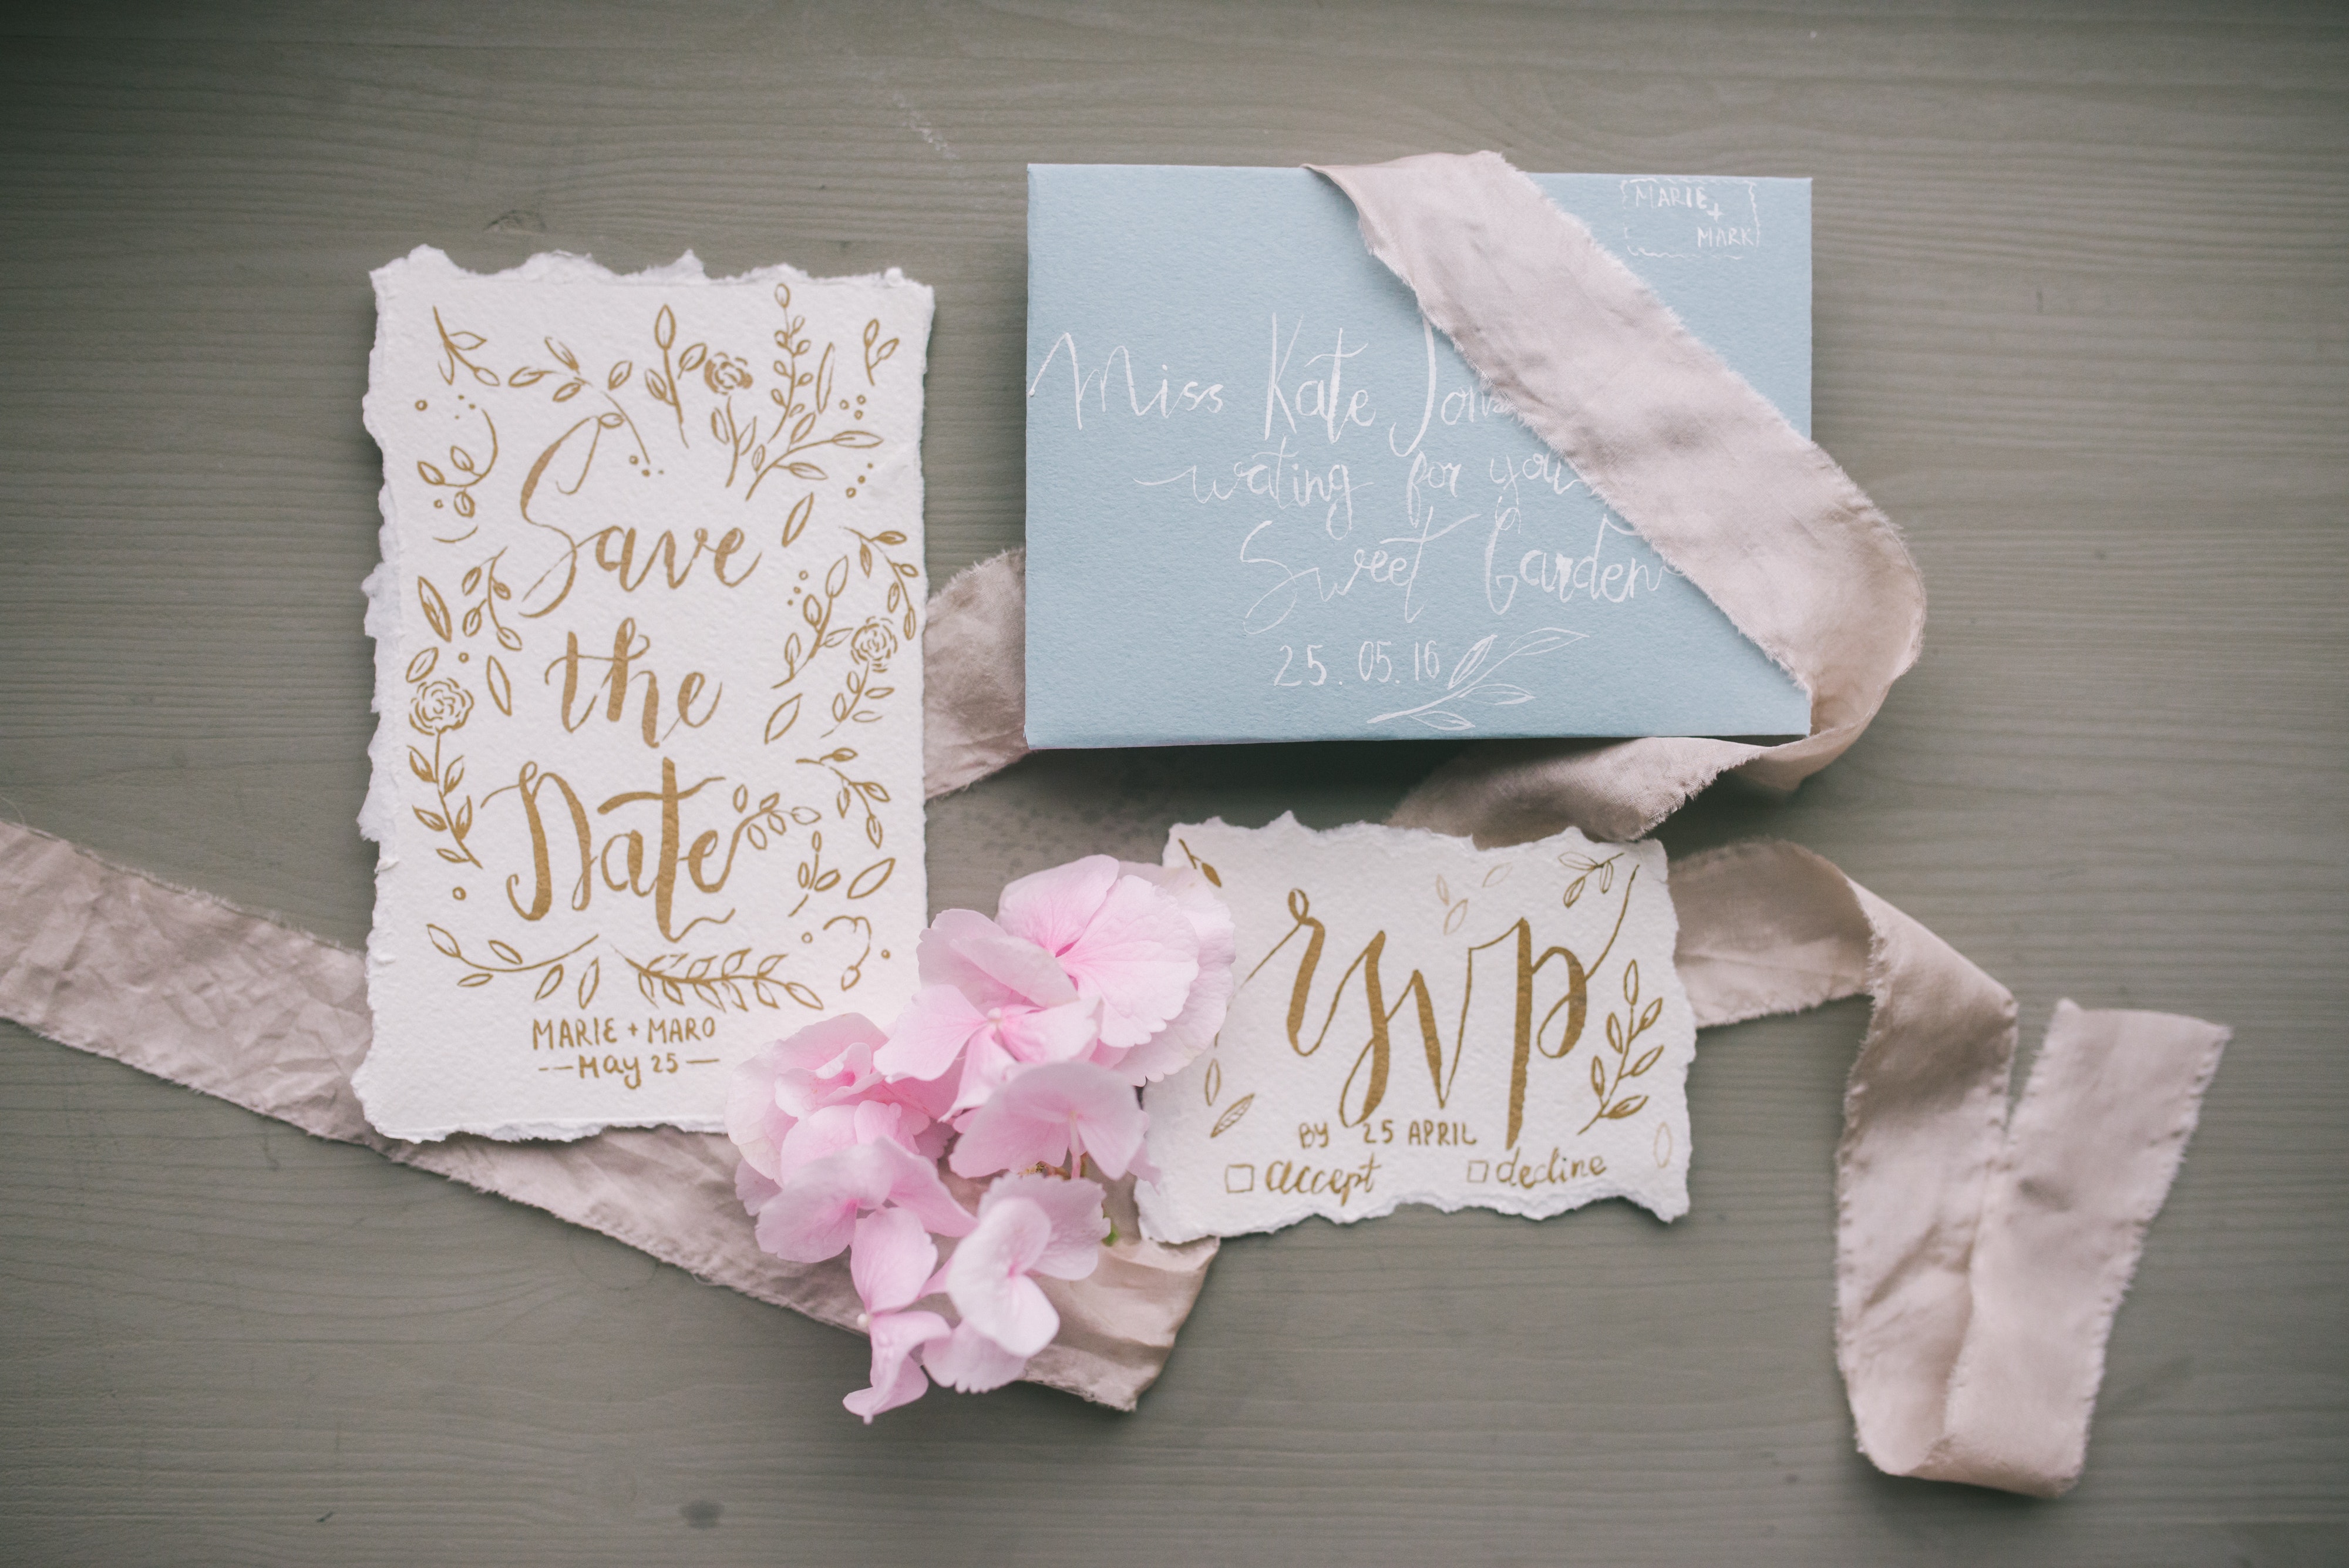 Save
the
Date
MARIE + MARO
May 25
MARIE
+
MARK
Miss Kate
wating for you
in
Sweet Garden
25.05.16
rsvp
BY 25 APRIL
accept decline